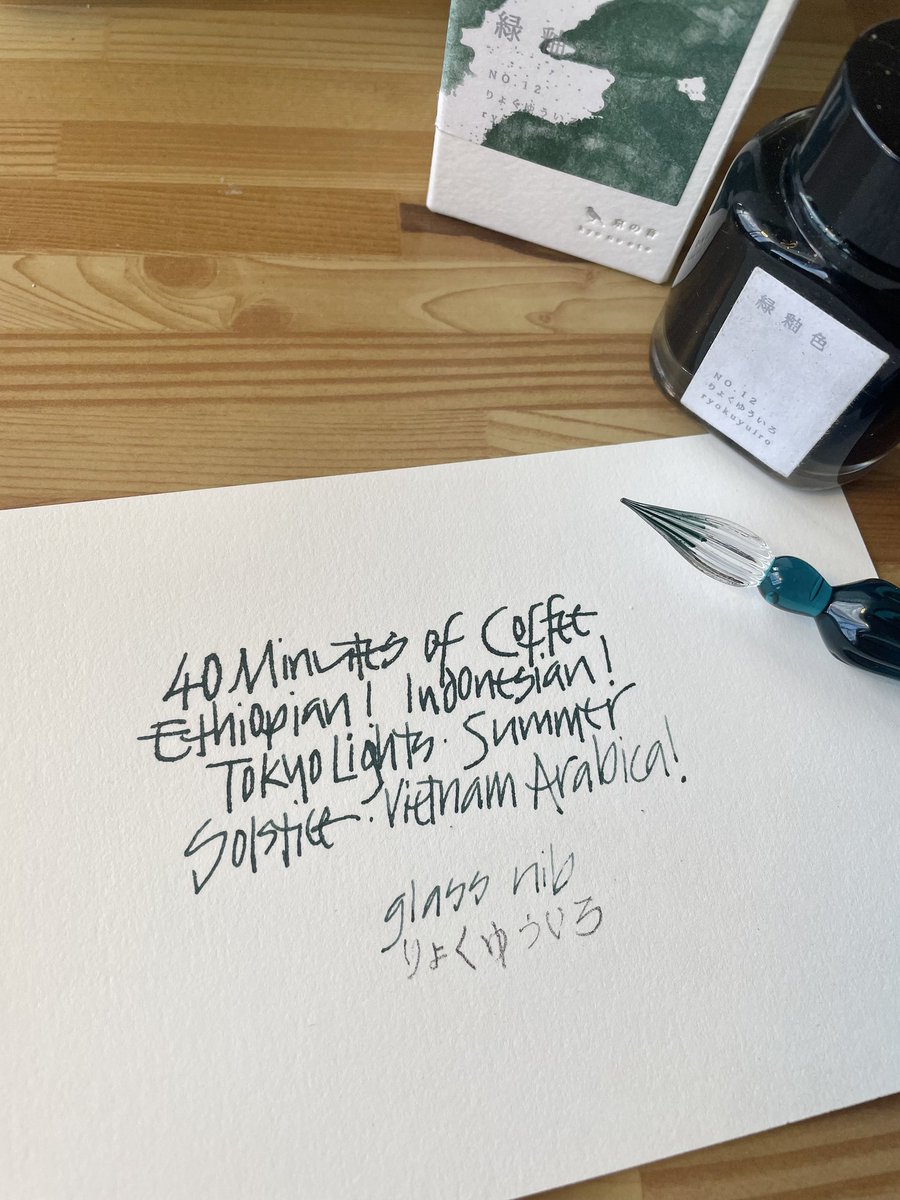 緑釉
NO.12
りょくゆうい
京の音
緑釉色
NO.12
りょくゆういろ
ryokuyuiro
40 Minutes of Coffee
Ethiopian! Indonesian!
Tokyo Lights. Summer
Solstice. Vietnam Arabica!
glass nib
りょくゆういろ